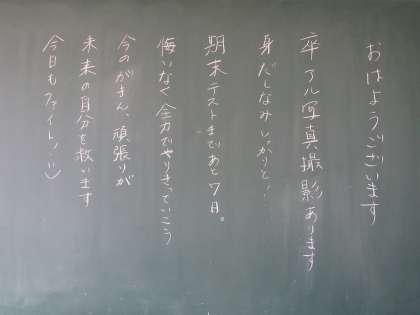 おはようございます
卒アル写真撮影あります
身だしなみしっかりと!
期末テストまであと7日。
悔いなく全力でやりきっていこう
今のがまん、頑張りが
未来の自分を救います
今日もファイト!!